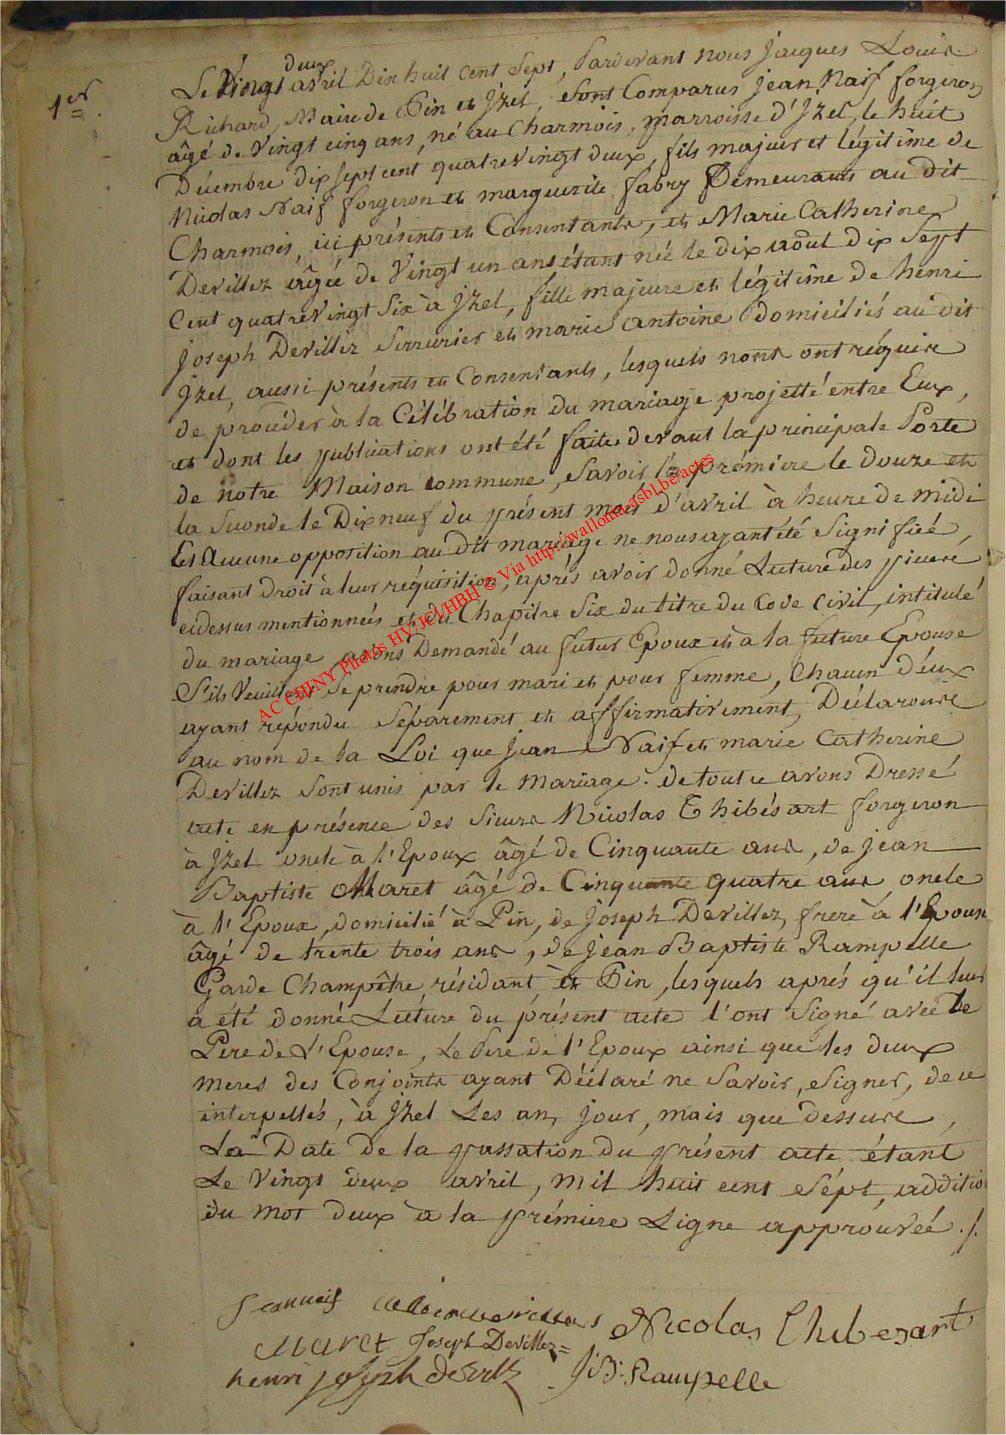 1er
deux
Le Vingt avril Dix huit Cent Sept, Pardevant nous Jacques Louis
Richard, Maire de Pin et Izel, sont Comparus Jean Naif forgeron
âgé de Vingt cinq ans, né au Charmois, marroisse d'Izel, le huit
Décembre dix sept cent quatre vingt deux, fils majeur et légitime de
Nicolas Naif forgeron et marguerite fabry Demeurants au dit
Charmois, ici présents et Consentants, et Marie Catherine
Devillez âgée de Vingt un ans étant née le dix août dix Sept
Cent quatre Vingt Six à Izel, fille majeure et légitime de henri
joseph Devillez Serrurier et marie antoine domiciliés au dit
Izel, aussi présents et Consentants, lesquels nous ont réquis
de procéder à la Célébration du mariage projetté entre Eux,
et dont les publications ont été faites devant la principale Porte
de notre Maison Commune, Savoir la prémiere le douze et
la Seconde le Dix neuf du présent mois d'avril à heure de midi
Et Aucune opposition au dit mariage ne nous ayant été Signifiée,
faisant droit à leur réquisition, aprés avoir donné Lecture des pieces
cidessus mentionnées et du Chapitre Six du titre du Code Civil, intitulé
du mariage, avons Demandé au futur Epoux et à la future Epouse
S'ils Veuillent Se prendre pour mari et pour femme, Chacun d'eux
ayant répondu Séparement et affirmativement, Déclarons
au nom de la Loi que Jean Naif et marie Catherine
Devillez Sont unis par le Mariage. de tout ce avons Dressé
acte en présence des Sieurs Nicolas Thibésart forgeron
à Izel oncle à l'Epoux âgé de Cinquante ans, de Jean
Baptiste Maret âgé de Cinquante quatre ans oncle
à l'Epoux, domicilié à Pin, de Joseph Devillez, frere à l'Epouse
âgé de trente trois ans, de Jean Baptiste Rampelle
Garde Champêtre, résidant à Pin, lesquels aprés qu'il leur
a eté donné Lecture du présent acte l'ont Signé avec le
Pere de L'Epouse, Le Pere de l'Epoux ainsi que les deux
meres des Conjoints ayant Déclaré ne Savoir, Signer, de ce
interpellés, à Izel Les an, jour, mois que dessus,
La Date de la passation du présent acte étant
Le Vingt deux avril, mil huit cent Sépt, additio
du mot deux à la prémiere Ligne approuvée ./.
AC CHINY Photos HV/JCL/HBH © Via http://wallonia.asbl.be/actes
Jean naif
Nicolas Thibesart
Maret Joseph Devillez
henri joseph devillez J: B: Rampelle